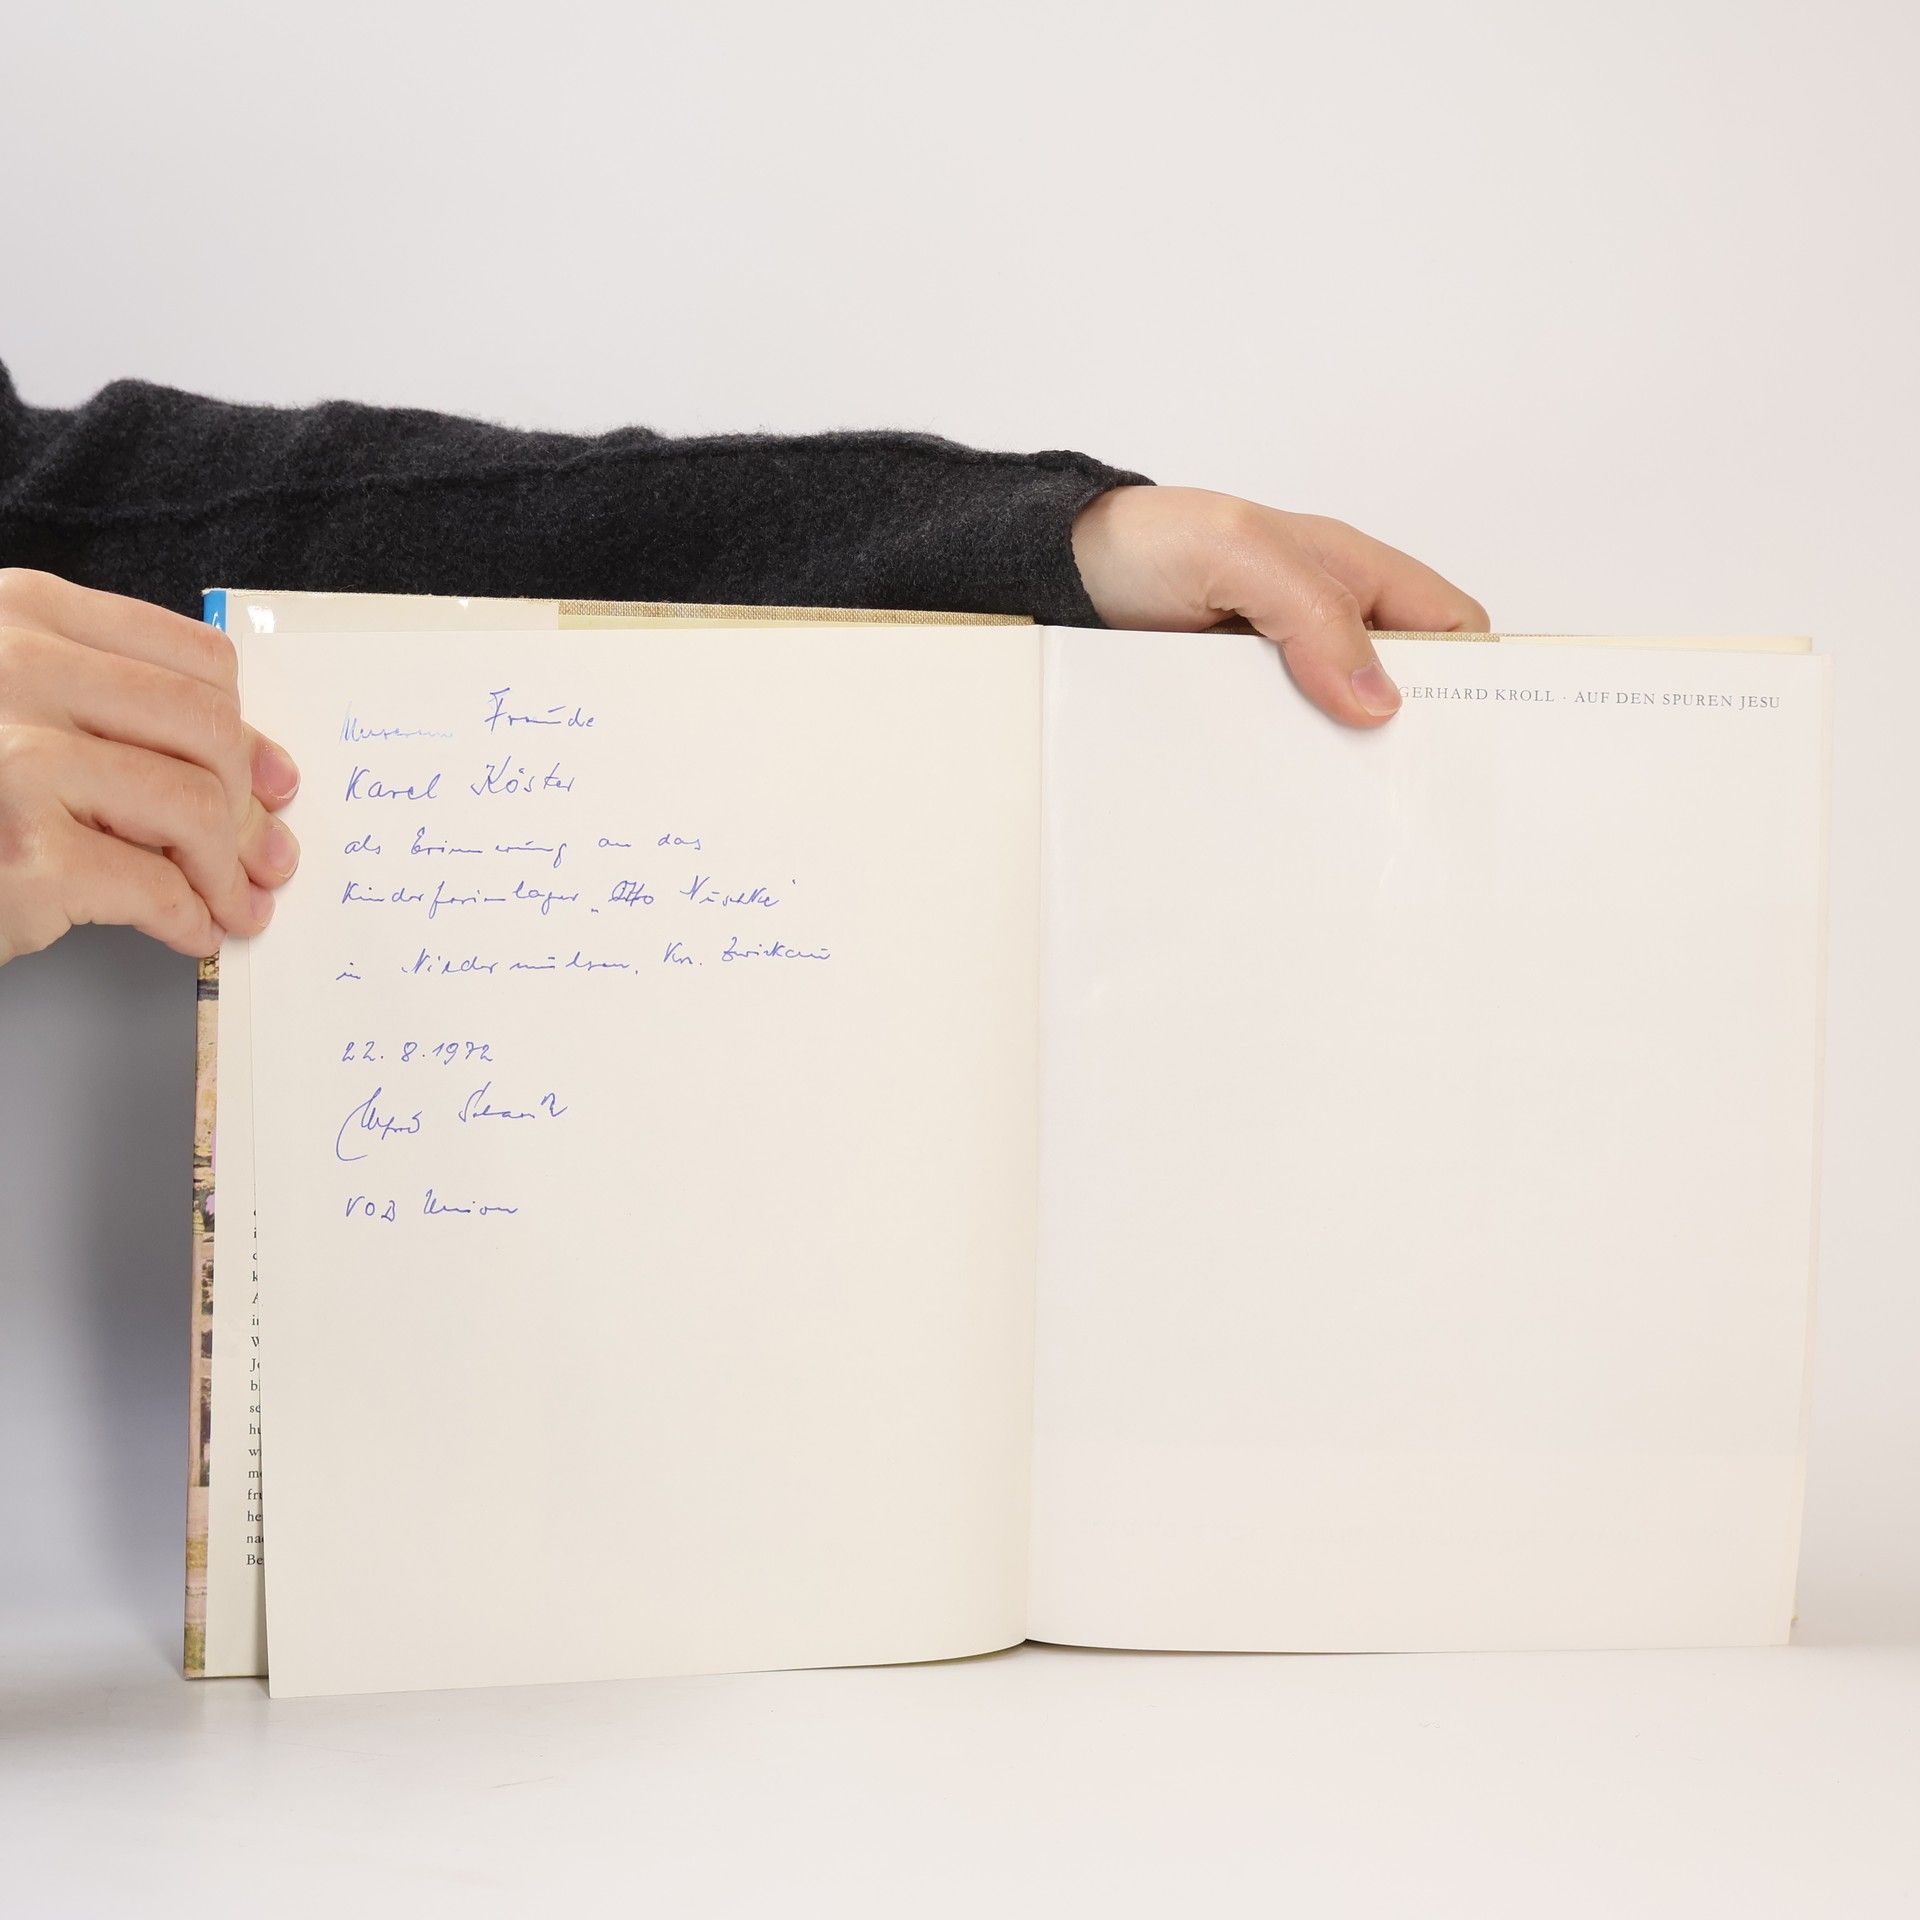 Unserem Freunde
Karel Köster
als Erinnerung an das
Kinderferienlager „Otto Nuschke"
in Niedermülsen, Krs. Zwickau
22.8.1972
Alfred
VOB Union
GERHARD KROLL · AUF DEN SPUREN JESU